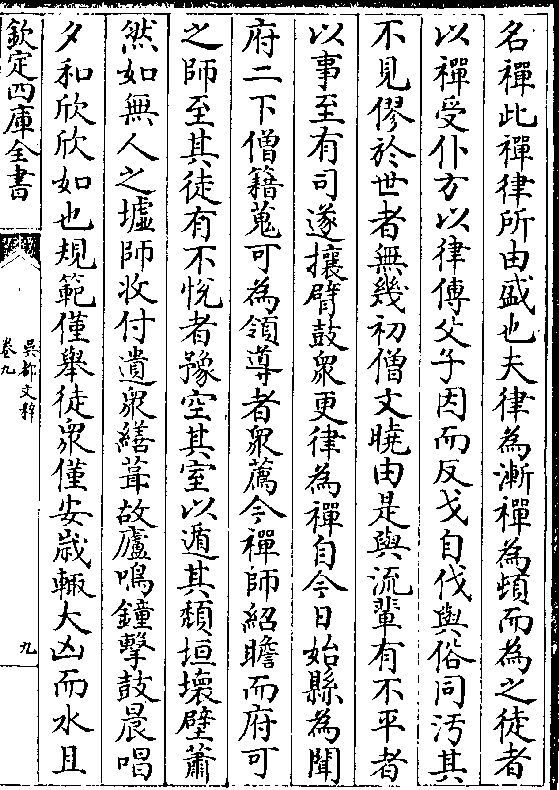 名禪此禪律所由盛也夫律為漸禪為頓而為之徒者
以禪受仆方以律傳父子因而反戈自伐與俗同汚其
不見僇於世者無幾初僧文曉由是與流輩有不平者
以事至有司遂攘臂鼓衆更律為禪自今日始縣為聞
府二下僧籍蒐可為領導者衆薦今禪師紹瞻而府可
之師至其徒有不悅者豫空其室以遁其頽垣壊壁蕭
然如無人之墟師收付遺衆繕葺故廬鳴鐘擊鼓晨唱
夕和欣欣如也規範僅舉徒衆僅安歳輙大凶而水且
欽定四庫全書
吳都文粹
卷九
九